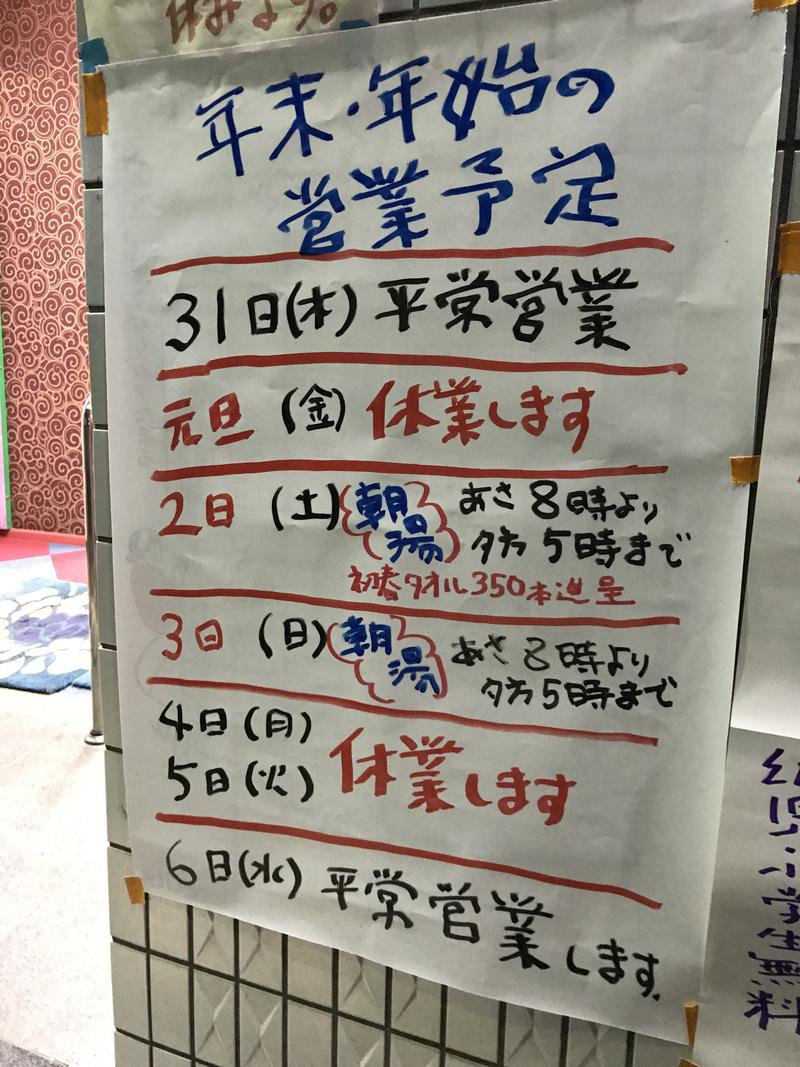 休みよ%。
年末・年始の
営業予定
31日(木) 平常営業
元旦 (金) 休業します
2日 (土) 朝湯 あさ8時より
夕方5時まで
初春タオル350本進呈
3日 (日) 朝湯 あさ8時より
夕方5時まで
4日(月)
5日(火) 休業します
6日(水) 平常営業します.
幼児小学生無料